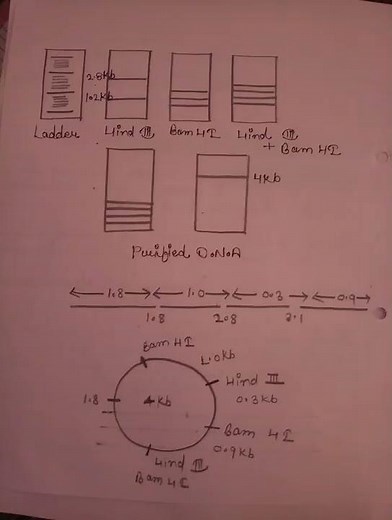 2.8kb
1.2kb
Ladder Hind III Bam HI Hind III
+ Bam HI
4kb
Purified D.N.A
1.8 1.0 0.3 0.9
1.8 2.8 3.1
Bam HI
1.0kb
Hind III
0.3kb
1.8 4 kb
Bam HI
0.9kb
Hind III
Bam HI